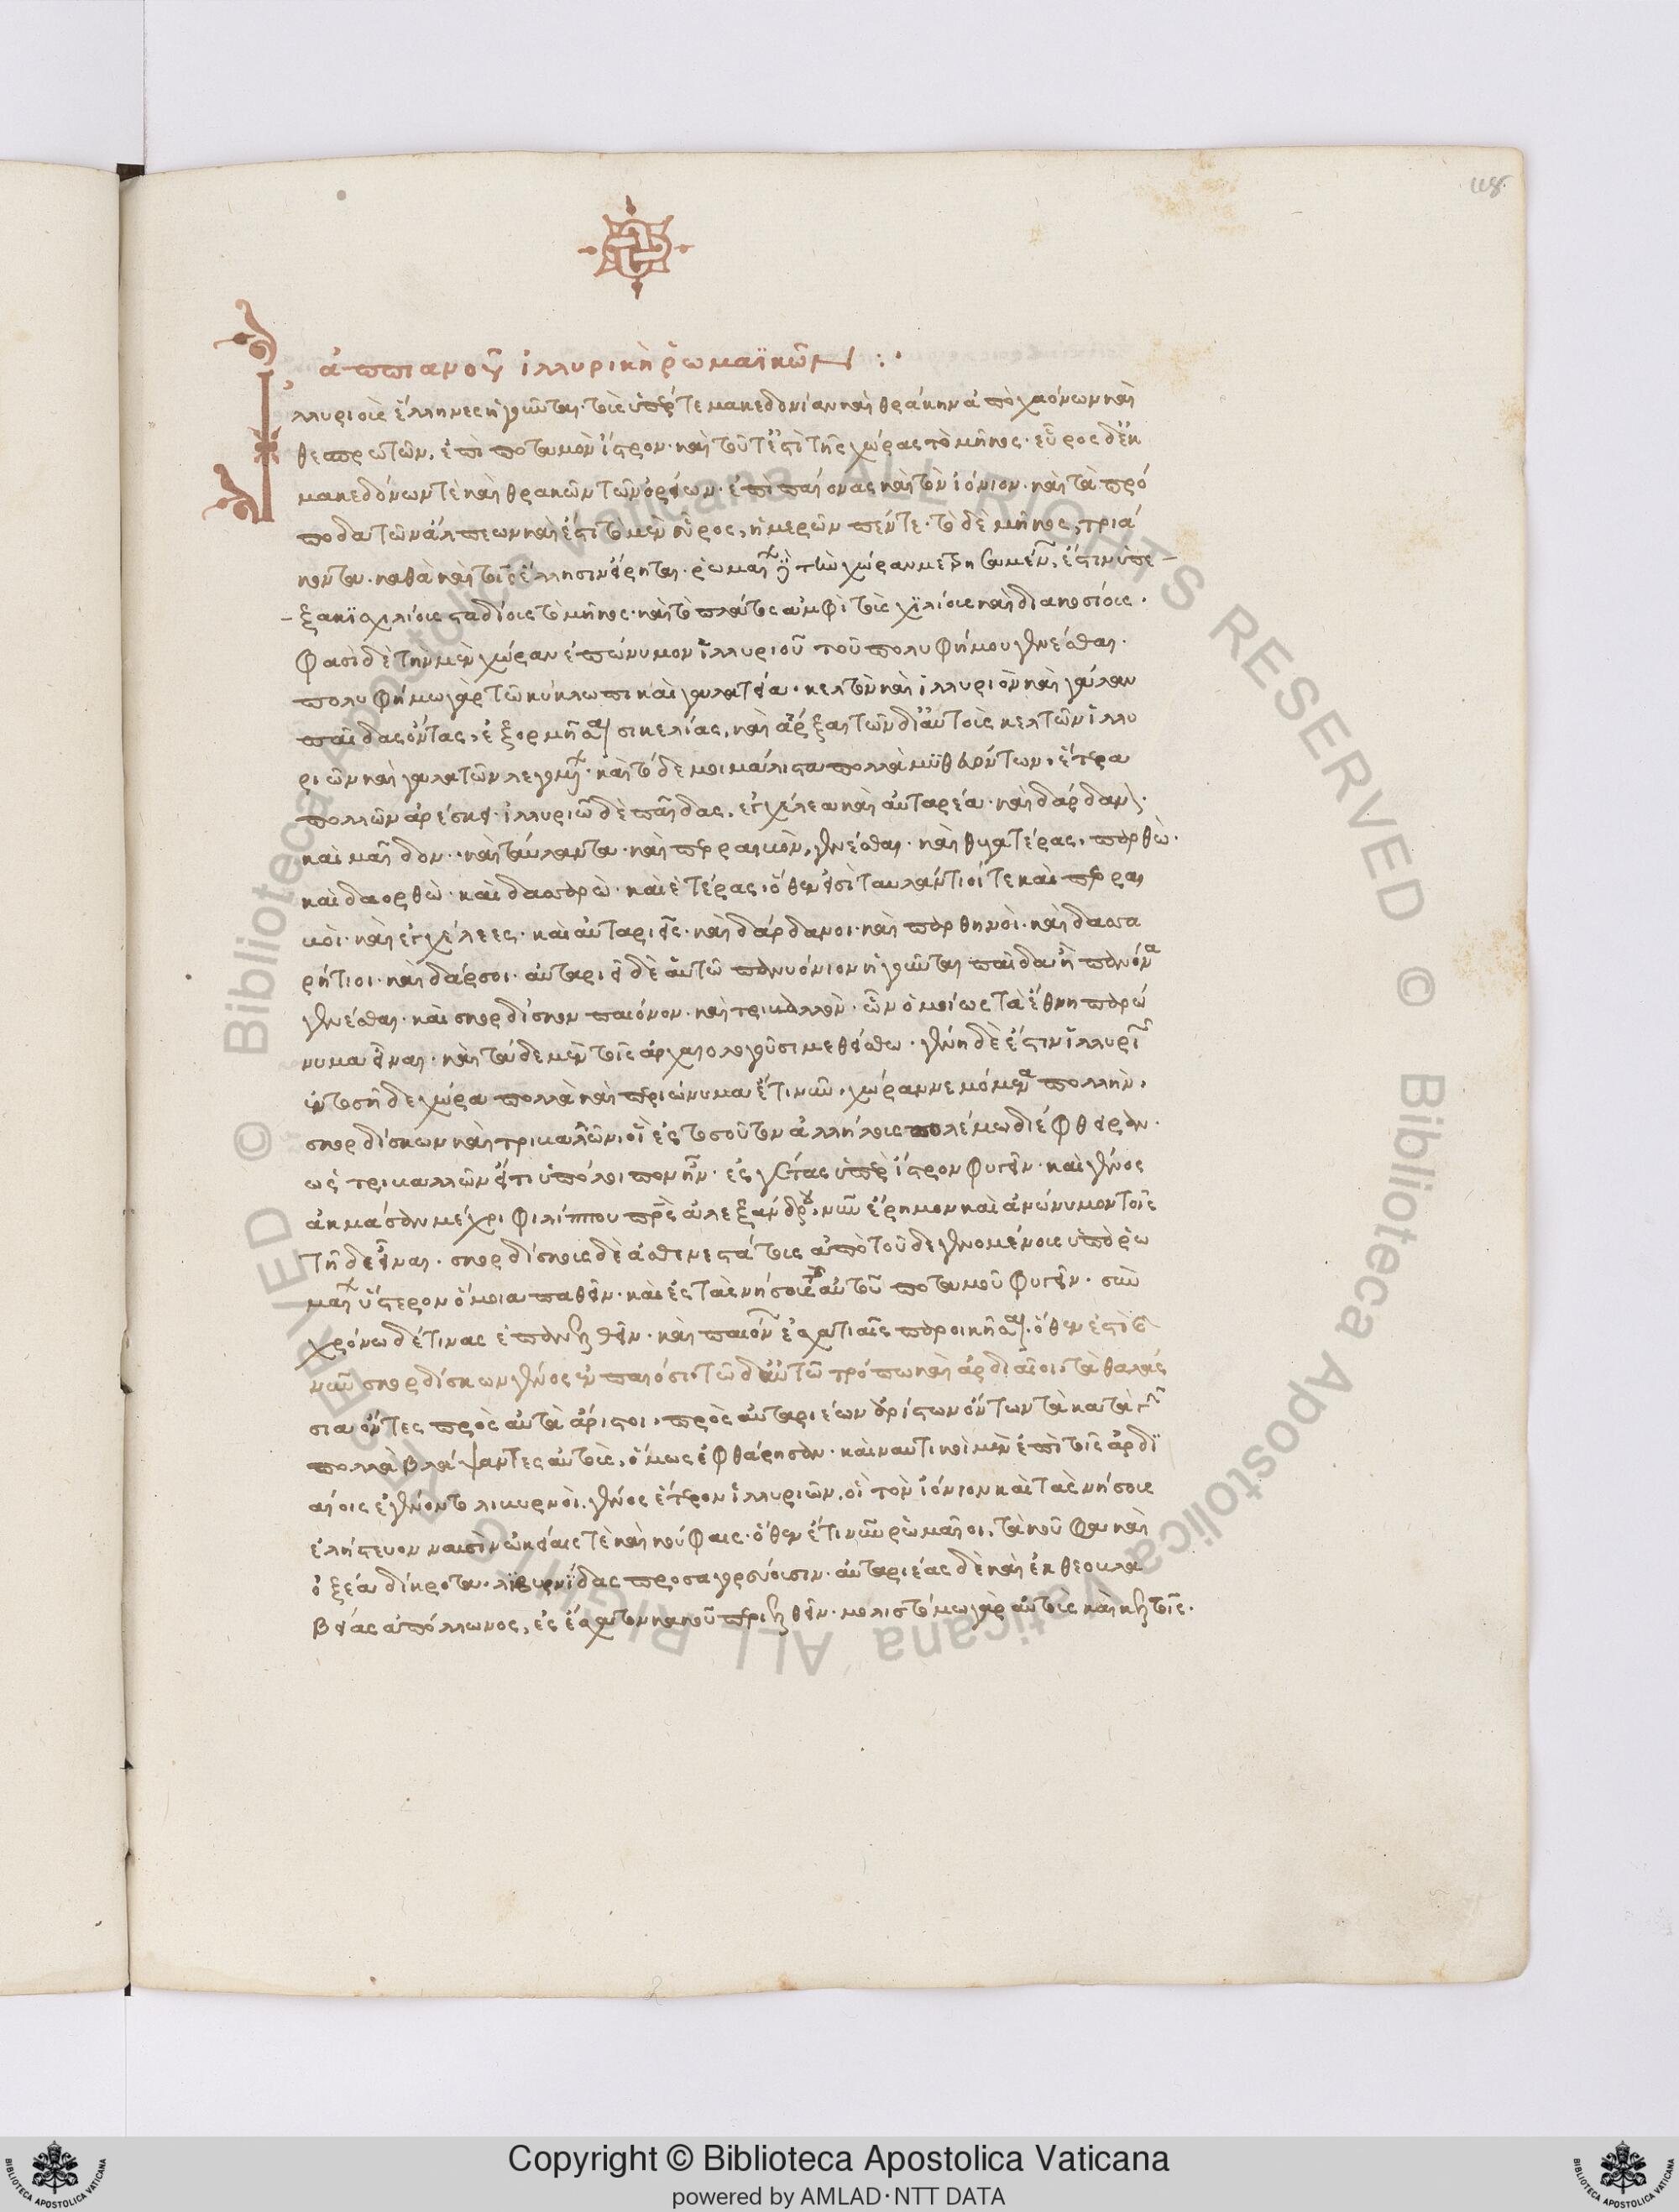 118
ἀππιανοῦ ἰλλυρικὴ ῥωμαϊκῶν :·
Ἰλλυριοὺς ἕλληνες ἡγοῦνται τοὺς ὑπέρ τε μακεδονίαν καὶ θράκην ἀπὸ χαόνων καὶ
θεσπρωτῶν, ἐπὶ ποταμὸν ἴστρον· καὶ τοῦτ' ἐστὶ τῆς χώρας τὸ μῆκος· εὖρος δ' ἐκ
μακεδόνων τὲ καὶ θρακῶν τῶν ὀρείων· ἐπὶ παίονας καὶ τὸν ἰόνιον· καὶ τὰ πρό
ποδα τῶν ἄλπεων καὶ ἔστι τὸ μὲν εὖρος, ἡμερῶν πέντε· τὸ δὲ μῆκος, τριά
κοντα· καθὰ καὶ τοῖς ἕλλησιν εἴρηται· ῥωμαί τὴν χώραν μετρησαμέν, ἔστιν ὑπὲ
ξακισχιλίους σταδίους τὸ μῆκος· καὶ τὸ πλάτος ἀμφὶ τοὺς χϊλίους καὶ διακοσίους·
Φασὶ δὲ τὴν μὲν χώραν ἐπώνυμον ἰλλυριοῦ τοῦ πολυφήμου γενέσθαι·
πολυφήμω γὰρ τῶ κύκλωπι καὶ γαλατεία· κελτὸν καὶ ἰλλυριὸν καὶ γάλαν
παῖδας ὄντας, ἐξορμῆσαι σικελίας, καὶ ἄρξαι τῶν δι' αὐτοὺς κελτῶν ἰλλυ
ριῶν καὶ γαλατῶν λεγομ· καὶ τόδε μοι μάλιστα πολλὰ μϋθευόντων, ἕτερα
πολλῶν ἀρέσκει· ἰλλυριῶ δὲ παῖδας, ἐγχέλεα καὶ αὐταριέα· καὶ δάρδαν·
καὶ μαῖδον· καὶ ταύλαντα· καὶ περραιβὸν, γενέσθαι· καὶ θυγατέρας, παρθὼ·
καὶ δαορθὼ· καὶ δασαρὼ· καὶ ἑτέρας· ὅθεν εἰσὶ ταυλάντιοί τε καὶ περραι
βοὶ· καὶ ἐγχέλεες· καὶ αὐταριεῖς· καὶ δάρδανοι· καὶ παρθηνοὶ· καὶ δασα
ρήτιοι· καὶ δάρσοι· αὐταριεῖ δὲ αὐτῶ παννόνιον ἡγοῦνται παῖδα ἢ παίονα
γενέσθαι· καὶ σκορδίσκον παιόνον· καὶ τριβαλλὸν· ὧν ὁμοίως τὰ ἔθνη παρώ
νυμα εἶναι· καὶ τάδε μὲν τοῖς ἀρχαιολογοῦσι μεθείσθω· γένη δὲ ἔστιν ἰλλυρι
ἐν τοσῆδε χώρα πολλὰ καὶ περιώνυμα ἔτι νῦν, χώραν νεμόμενα πολλὴν,
σκορδίσκων καὶ τριβαλλῶν, οἳ ἐς τοσοῦτον ἀλλήλους πολέμω διέφθειραν·
ὡς τριβαλλῶν εἴ τι ὑπόλοιπον ἦν· ἐς γέτας ὑπὲρ ἴστρον φυγεῖν· καὶ γένος
ἀκμάσαν μέχρι φιλίππου τε καὶ ἀλεξάνδρου, νῦν ἔρημον καὶ ἀνώνυμον τοῖς
τῆδε εἶναι· σκορδίσκους δὲ ἀσθενεστάτους ἀπὸ τοῦδε γενομένους ὑπὸ ῥω
μαί ὕστερον ὅμοια παθεῖν· καὶ ἐς τὰς νήσους τοῦ αὐτοῦ ποταμοῦ φυγεῖν· σὺν
χρόνω δέ τινας ἐπανελθεῖν· καὶ παιόνων ἐσχατιαῖς παροικῆσαι· ὅθεν ἔστι
νῦν σκορδίσκων γένος ἐν παιόσι· τῶ δ' αὐτῶ τρόπω καὶ ἀρδιαῖοι, τὰ θαλάσ
σια ὄντες πρὸς αὐτὰ ἄριστοι, πρὸς αὐταριέων ἀρίστων ὄντων τὰ κατὰ γῆν
πολλὰ βλάψαντες αὐτοὺς, ὅμως ἐφθάρησαν· καὶ ναυτικοὶ μὲν ἐπὶ τοῖς ἀρδϊ
αίοις ἐγένοντο λιβυρνοὶ, γένος ἕτερον ἰλλυριῶν, οἳ τὸν ἰόνιον καὶ τὰς νήσους
ἐλήστευον ναυσὶν ὠκείαις τὲ καὶ κούφαις· ὅθεν ἔτι νῦν ῥωμαῖοι, τὰ κοῦφα καὶ
ὀξέα δίκροτα, λϊβυρνϊδας προσαγορεύουσιν· αὐταριέας δὲ καὶ ἐκ θεοβλα
βείας ἀπόλλωνος, ἐς ἔσχατον κακοῦ περιελθεῖν· μολιστόμω γὰρ αὐτοὺς καὶ κελτοῖς·
Copyright © Biblioteca Apostolica Vaticana
powered by AMLAD·NTT DATA
BIBLIOTECA APOSTOLICA VATICANA
BIBLIOTECA APOSTOLICA VATICANA
© Biblioteca Apostolica Vaticana ALL RIGHTS RESERVED © Biblioteca Apostolica Vaticana ALL RIGHTS RESERVED